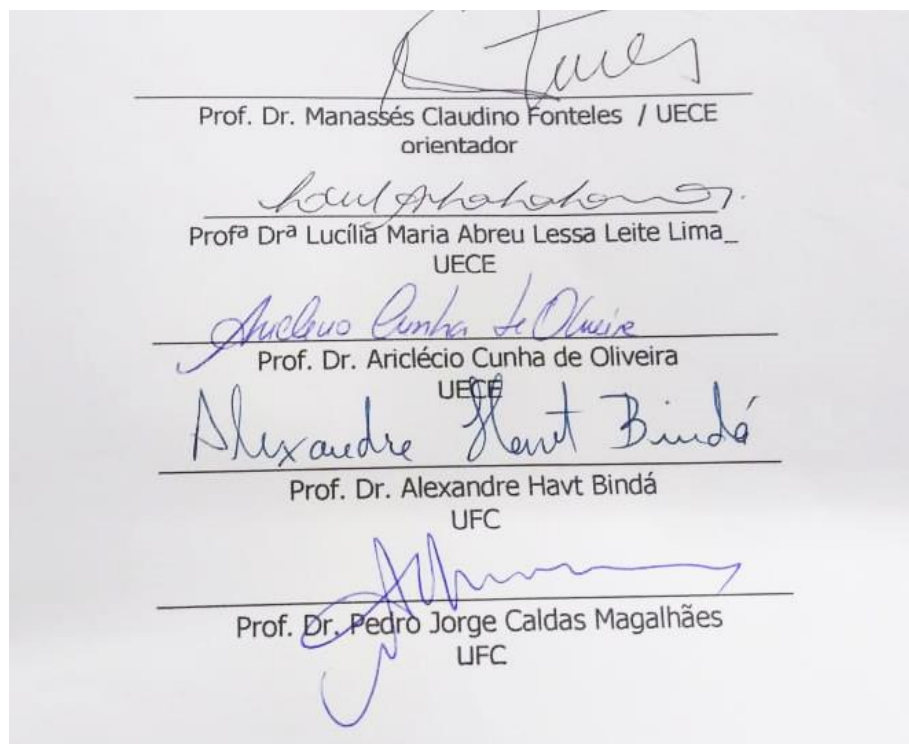 Prof. Dr. Manassés Claudino Fonteles / UECE
orientador
Profª Drª Lucília Maria Abreu Lessa Leite Lima_
UECE
Ariclécio Cunha de Oliveira
Prof. Dr. Ariclécio Cunha de Oliveira
UECE
Alexandre Havt Bindá
Prof. Dr. Alexandre Havt Bindá
UFC
Prof. Dr. Pedro Jorge Caldas Magalhães
UFC